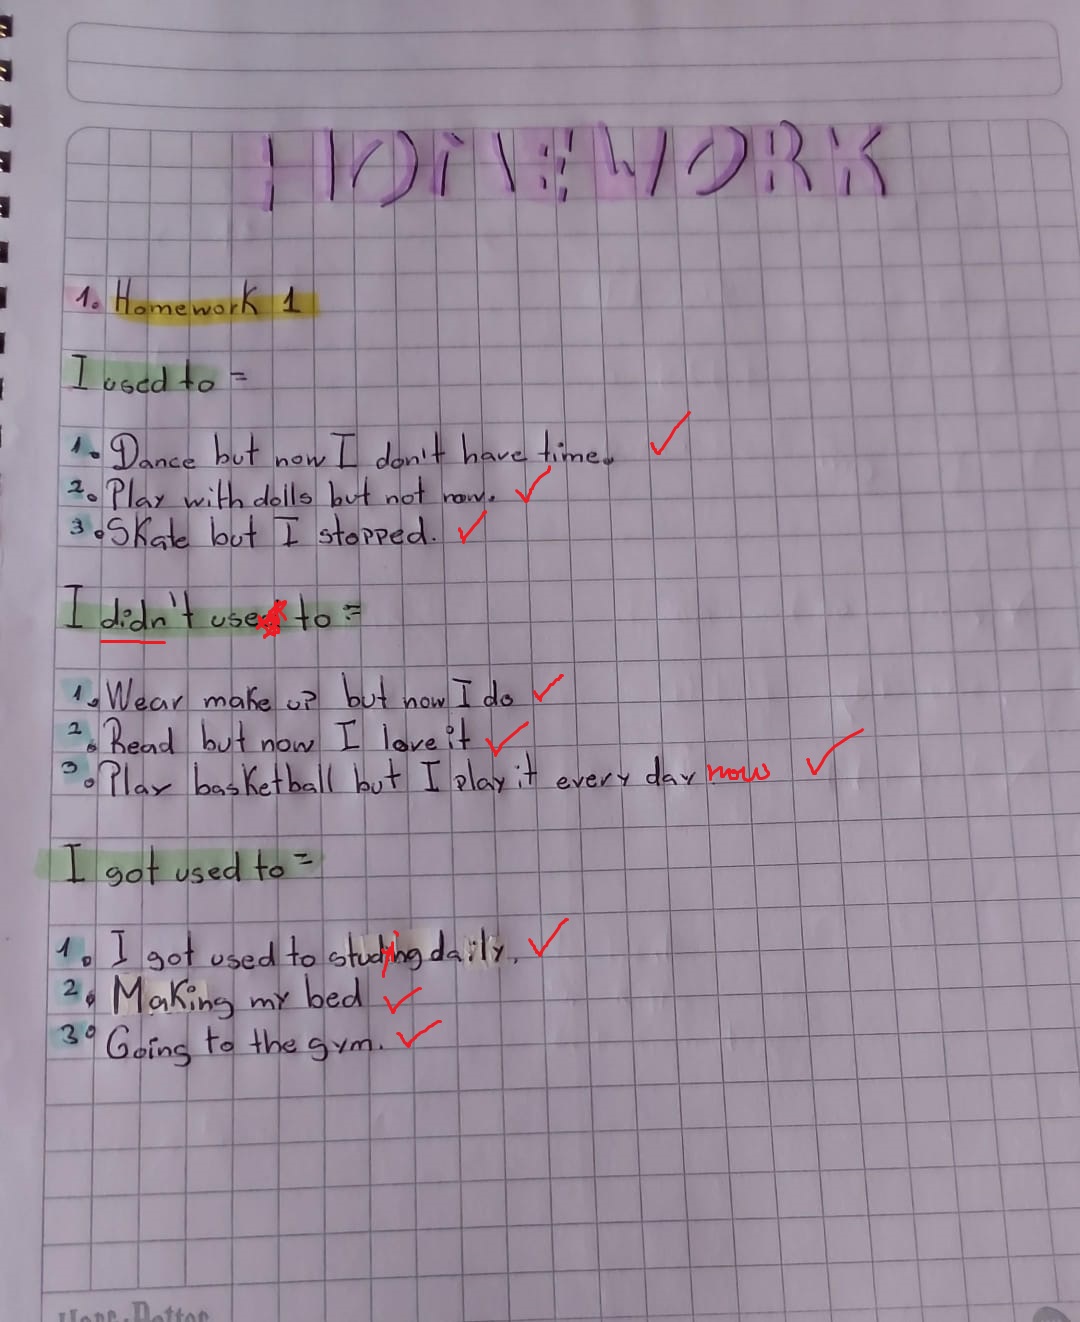 HOMEWORK
1. Homework 1
I used to =
1. Dance but now I don't have time.
2. Play with dolls but not now.
3. Skate but I stopped.
I didn't use to =
1. Wear make up but now I do
2. Read but now I love it
3. Play basketball but I play it every day now
I got used to =
1. I got used to studying daily.
2. Making my bed
3. Going to the gym.